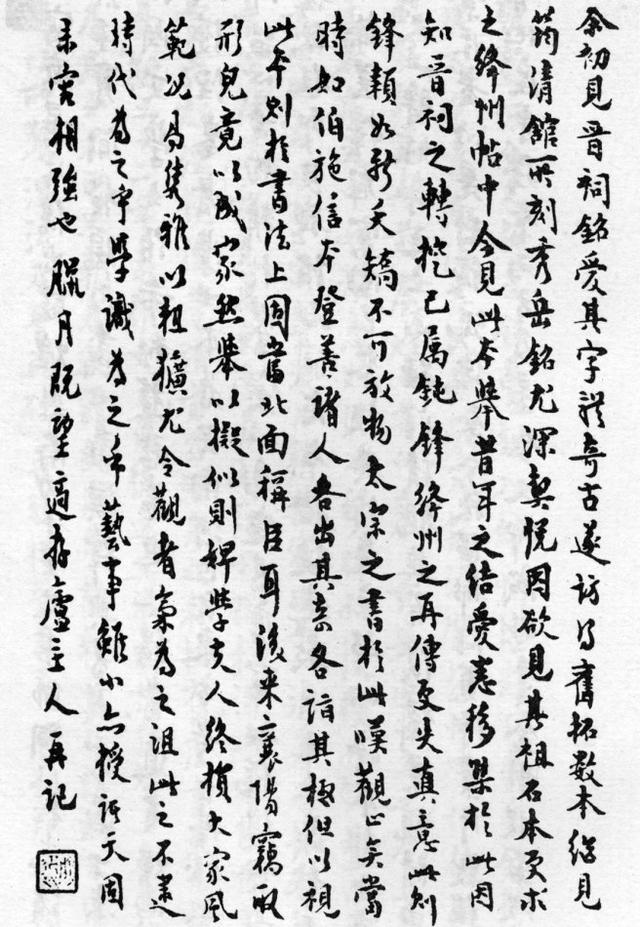 余初見晉祠銘愛其字體奇古遂訪得舊拓數本繼見
筠清館所刻秀岳銘尤深契悅因欲見其祖石本更求
之絳州帖中今見此本舉昔年之結愛悉移集於此因
知晉祠之轉捩已属鈍鋒絳州之再傳更失真意此則
鋒穎如新夭矯不可放物太宗之書於此嘆觀止矣當
時如伯施信本登善諸人各出其奇各詣其極但以視
此本則於書法上固當北面稱臣耳後来襄陽竊取
形皃竟以成家然舉以擬似則婢學夫人終損大家風
範况易雋雅以粗獷尤令觀者氣為之沮此之不逮
時代為之乎學識為之乎藝事雖小亦授諸天固
未容相強也臘月既望適存廬主人再記